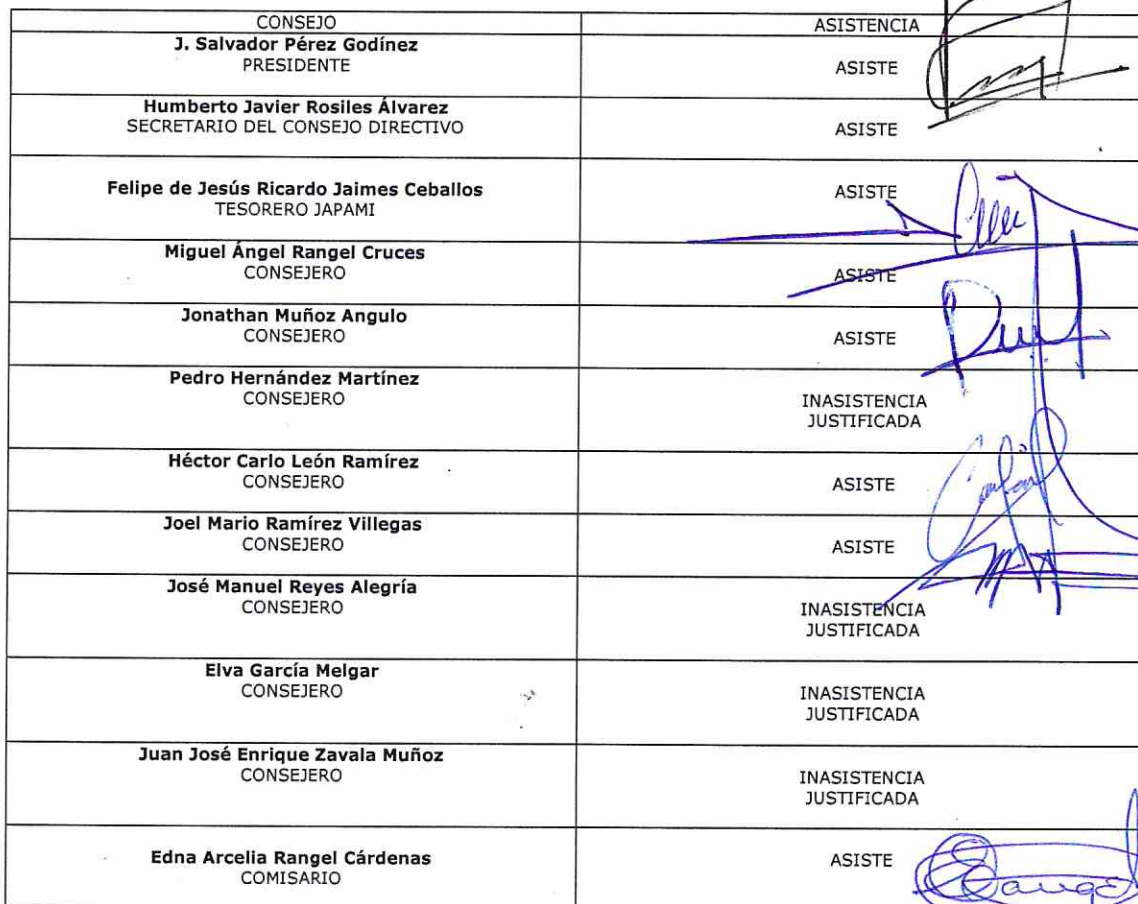 CONSEJO ASISTENCIA
J. Salvador Pérez Godínez
PRESIDENTE
ASISTE
Humberto Javier Rosiles Álvarez
SECRETARIO DEL CONSEJO DIRECTIVO
ASISTE
Felipe de Jesús Ricardo Jaimes Ceballos
TESORERO JAPAMI
ASISTE
Miguel Ángel Rangel Cruces
CONSEJERO
ASISTE
Jonathan Muñoz Angulo
CONSEJERO
ASISTE
Pedro Hernández Martínez
CONSEJERO
INASISTENCIA
JUSTIFICADA
Héctor Carlo León Ramírez
CONSEJERO
ASISTE
Joel Mario Ramírez Villegas
CONSEJERO
ASISTE
José Manuel Reyes Alegría
CONSEJERO
INASISTENCIA
JUSTIFICADA
Elva García Melgar
CONSEJERO
INASISTENCIA
JUSTIFICADA
Juan José Enrique Zavala Muñoz
CONSEJERO
INASISTENCIA
JUSTIFICADA
Edna Arcelia Rangel Cárdenas
COMISARIO
ASISTE